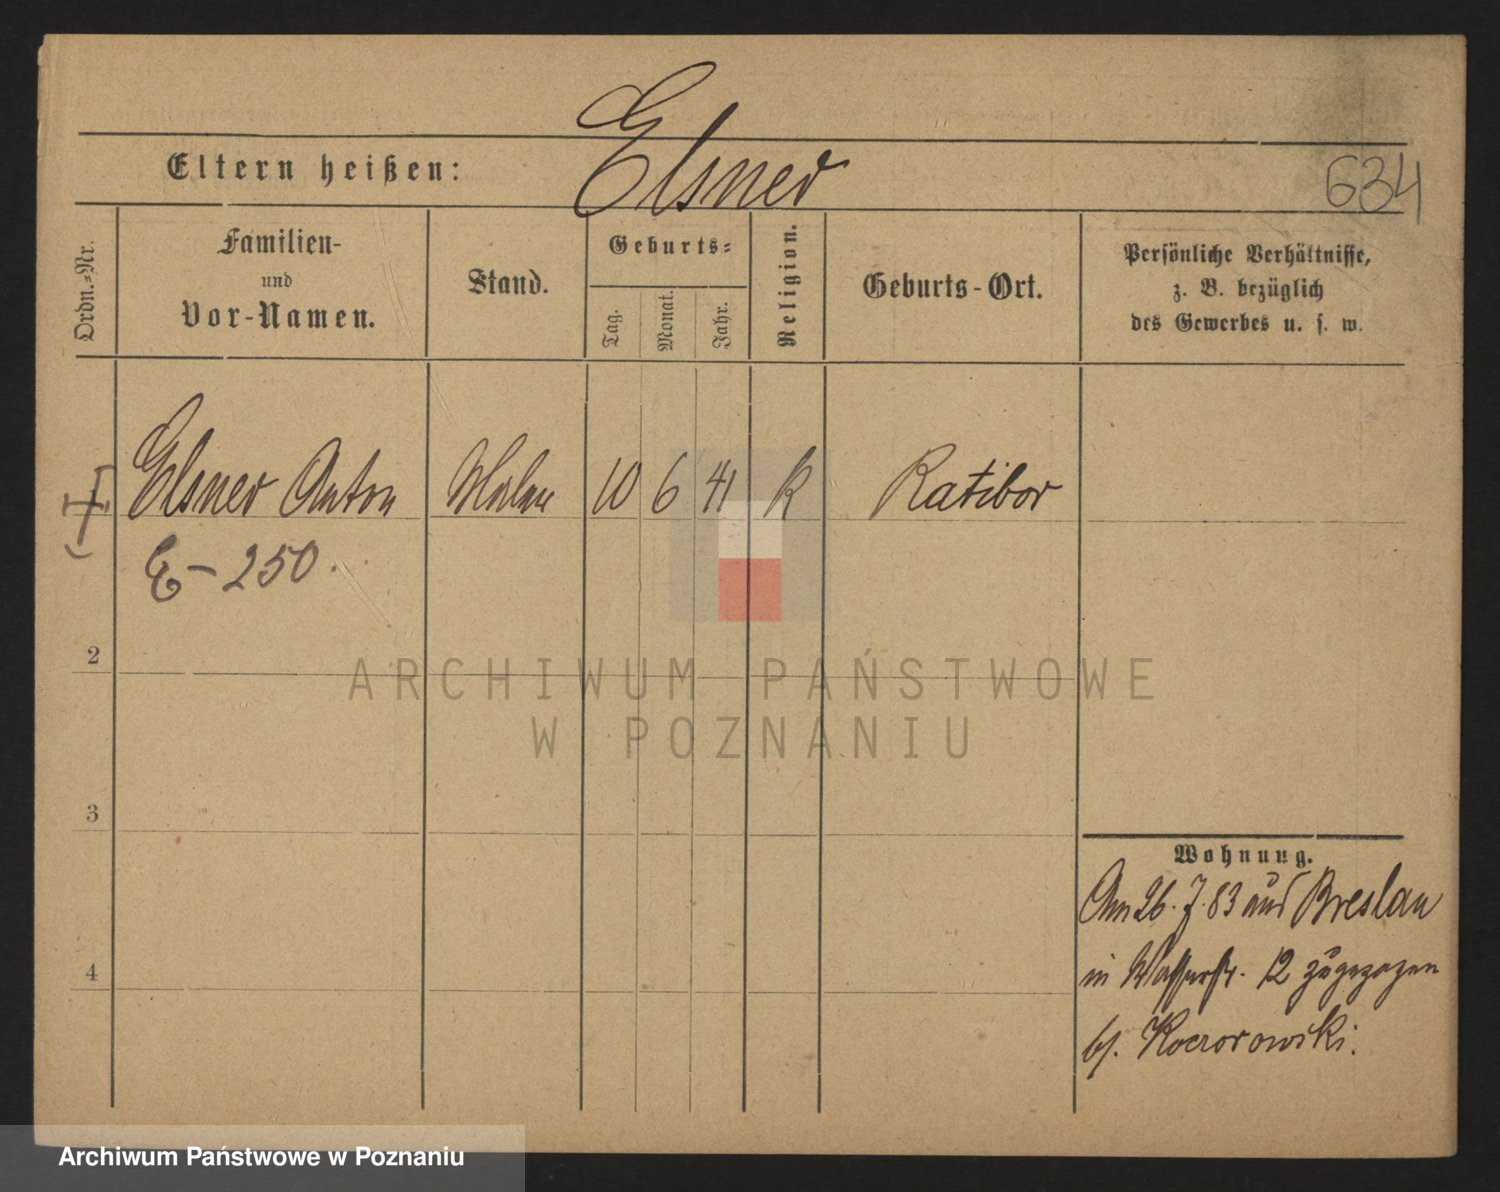 Elsner
Eltern heißen:
634
Ordn.=Nr.
Familien-
und
Vor-Namen.
Stand.
Geburts=
Tag.
Monat.
Jahr.
Religion.
Geburts-Ort.
Persönliche Verhältnisse,
z. B. bezüglich
des Gewerbes u. s. w.
Elsner Anton
10 6 41 k Ratibor
E-250.
2
3
4
Wohnung.
Am 26. 7. 83 aus Breslau
in Wasserstr. 12 zugezogen
bf. Koczorowski.
ARCHIWUM PAŃSTWOWE
W POZNANIU
Archiwum Państwowe w Poznaniu